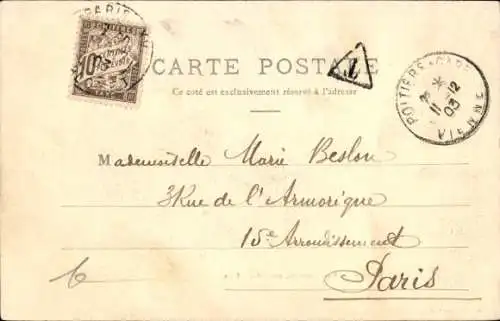 PARIS
10c
CARTE POSTALE
T
Ce côté est exclusivement réservé à l'adresse
POITIERS-GARE
11-12
03
VIENNE
Mademoiselle Marie Beslon
3 Rue de l'Armorique
15e Arrondissement
Paris